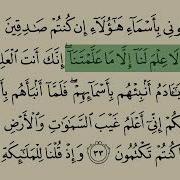 ونِى بِأَسْمَآءِ هَٰٓؤُلَآءِ إِن كُنتُمْ صَٰدِقِينَ
لَا عِلْمَ لَنَآ إِلَّا مَا عَلَّمْتَنَآ إِنَّكَ أَنتَ ٱلْعَلِ
ـَٔادَمُ أَنۢبِئْهُم بِأَسْمَآئِهِمْ فَلَمَّآ أَنۢبَأَهُم
كُمْ إِنِّىٓ أَعْلَمُ غَيْبَ ٱلسَّمَٰوَٰتِ وَٱلْأَرْضِ
كُنتُمْ تَكْتُمُونَ ٣٣ وَإِذْ قُلْنَا لِلْمَلَٰٓئِكَةِ